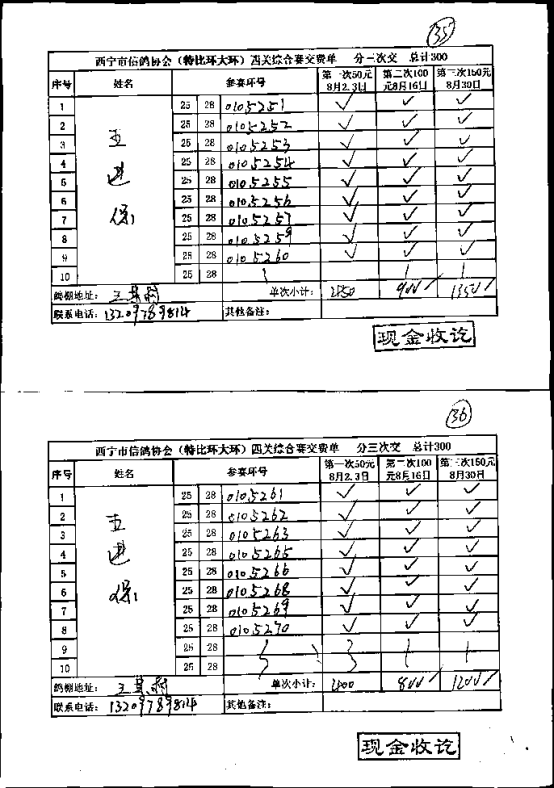 35
西宁市信鸽协会（特比环大环）四关综合赛交费单 分三次交 总计300
序号 姓名 参赛环号 第一次50元8月2.3日 第二次100元8月16日 第三次150元8月30日
1 25 28 0105251 ✓ ✓ ✓
2 25 28 0105252 ✓ ✓ ✓
3 25 28 0105253 ✓ ✓ ✓
4 25 28 0105254 ✓ ✓ ✓
5 25 28 0105255 ✓ ✓ ✓
6 25 28 0105256 ✓ ✓ ✓
7 25 28 0105257 ✓ ✓ ✓
8 25 28 0105259 ✓ ✓ ✓
9 25 28 0105260 ✓ ✓ ✓
10 25 28
王进保
鸽棚地址： 单次小计： 450 900 1350
联系电话：13209789814 其他备注：
现金收讫
36
西宁市信鸽协会（特比环大环）四关综合赛交费单 分三次交 总计300
序号 姓名 参赛环号 第一次50元8月2.3日 第二次100元8月16日 第三次150元8月30日
1 25 28 0105261 ✓ ✓ ✓
2 25 28 0105262 ✓ ✓ ✓
3 25 28 0105263 ✓ ✓ ✓
4 25 28 0105265 ✓ ✓ ✓
5 25 28 0105266 ✓ ✓ ✓
6 25 28 0105268 ✓ ✓ ✓
7 25 28 0105269 ✓ ✓ ✓
8 25 28 0105270 ✓ ✓ ✓
9 25 28
10 25 28
王进保
鸽棚地址： 单次小计： 400 800 1200
联系电话：13209789814 其他备注：
现金收讫